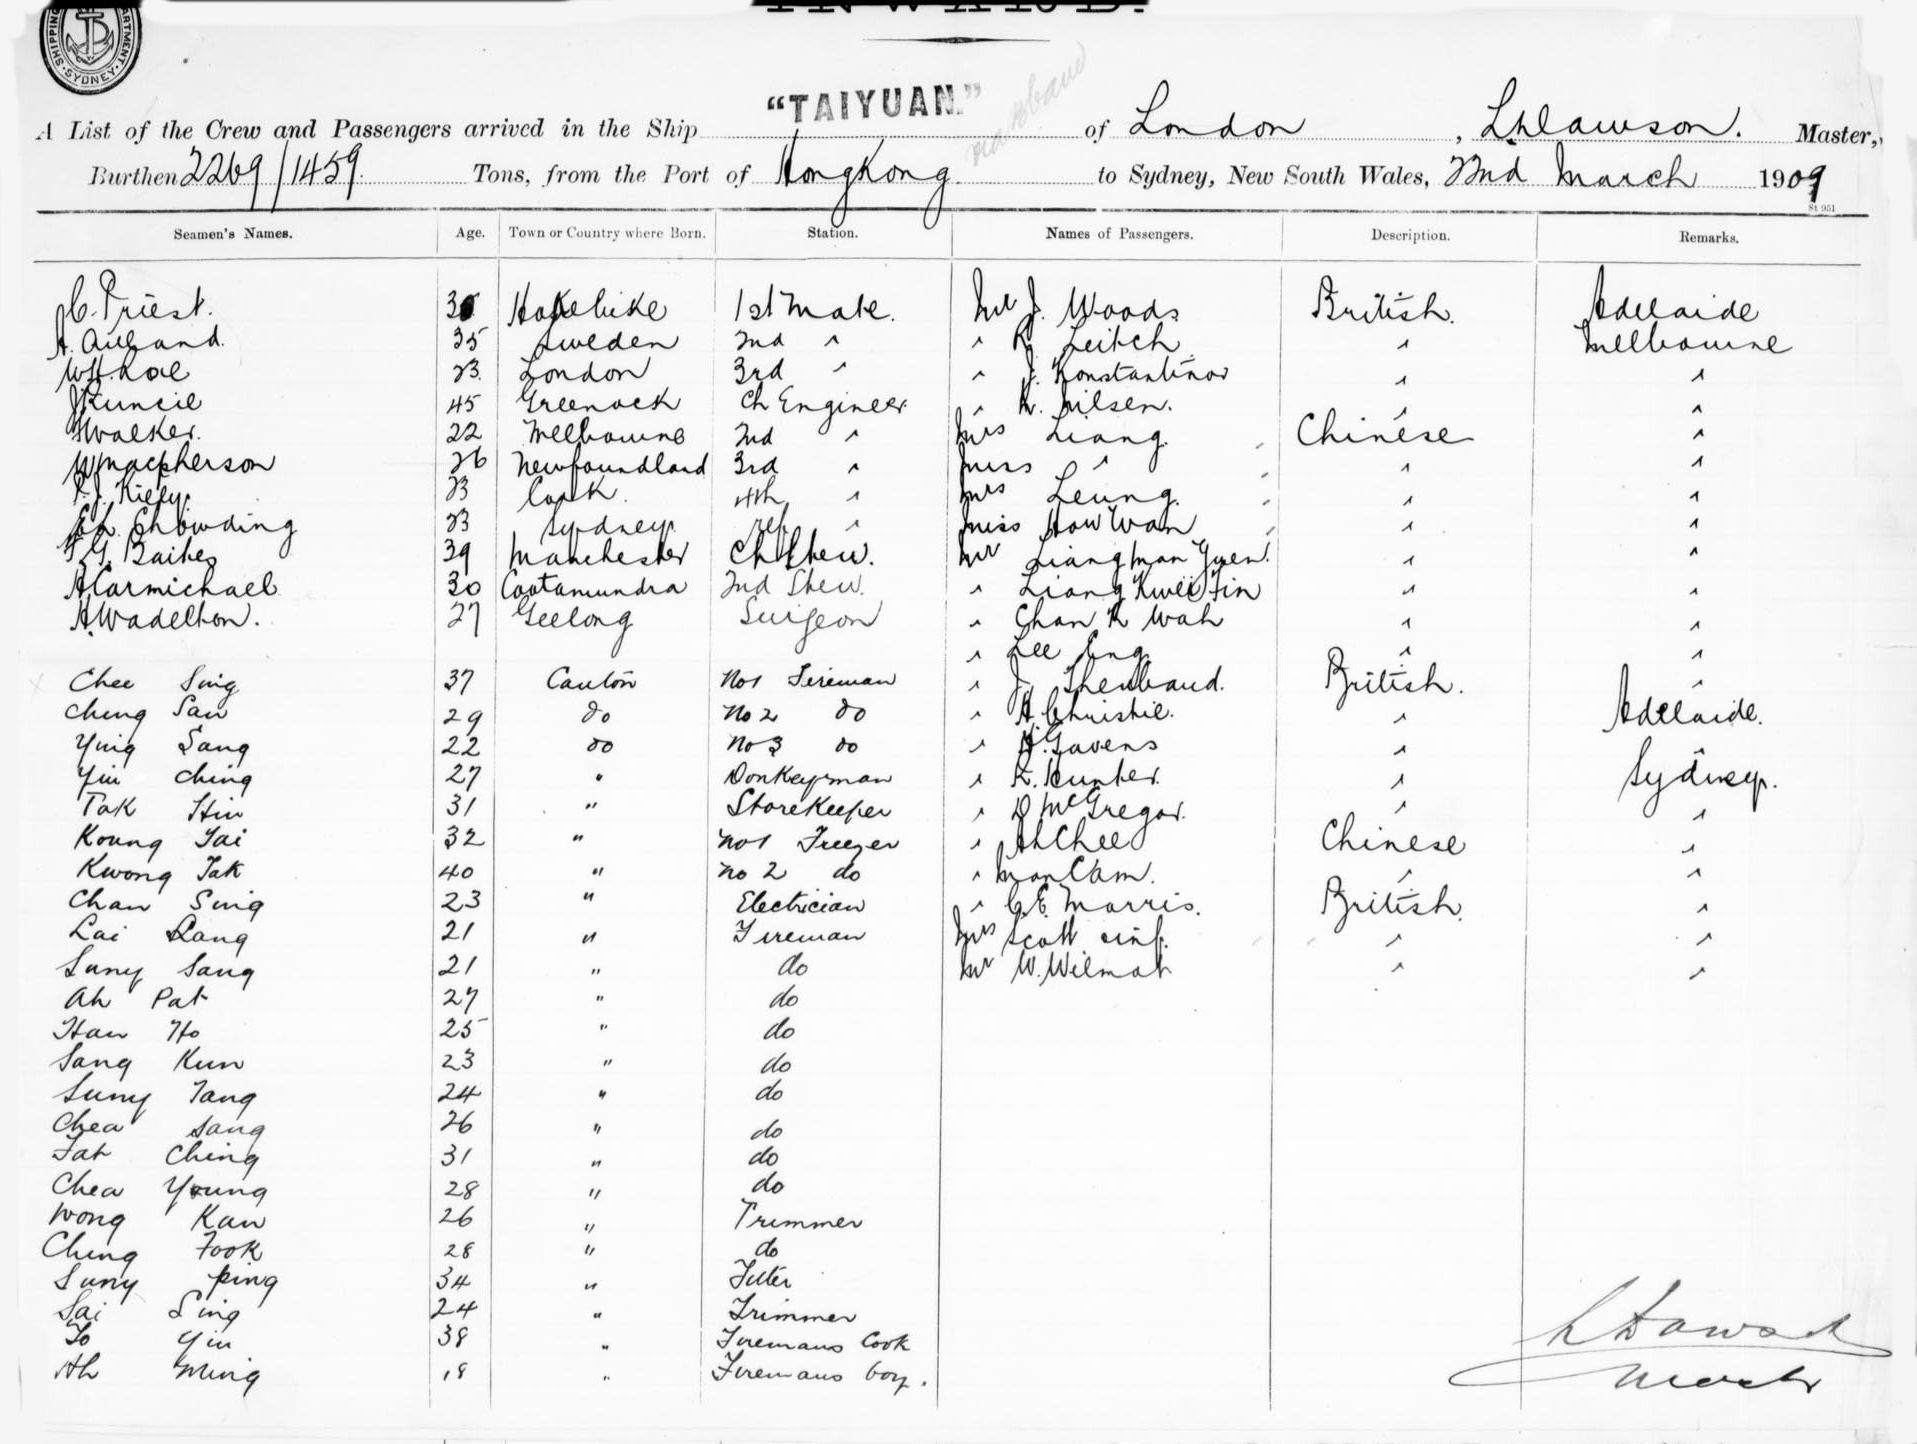 SHIPPING DEPARTMENT SYDNEY
INWARD.
"TAIYUAN."
A List of the Crew and Passengers arrived in the Ship of London, Master,
Burthen 2269/1459 Tons, from the Port of HongKong to Sydney, New South Wales, 22nd March 1909
St 951
Seamen's Names. Age. Town or Country where Born. Station. Names of Passengers. Description. Remarks.
C. Priest. 1st Mate. Mr J. Woods British. Adelaide
A. 35 Sweden 2nd " " R. Leitch " Melbourne
23 London 3rd " " J. Konstantinos " "
J Runcie 45 Greenock Ch Engineer " N. Nilsen. " "
Walker. 22 Melbourne 2nd " Mrs Liang. Chinese "
Macpherson 26 Newfoundland 3rd " Miss " " "
Kiely. 23 Cork. 4th " Mrs Leung. " "
Chowding 23 Sydney. ref " Miss How Wan " "
F. G. Baikes 39 Manchester Ch Stew. Mr Liang Man Yuen. " "
A Carmichael 30 Cootamundra 2nd Stew. " Liang Kwei Fin " "
A. Wadelton. 27 Geelong Surgeon " Chan K Wah " "
" Lee Eng " "
Chee Sing 37 Canton No 1 Fireman " J. Shenbaud. British. "
Ching San 29 do No 2 do " A. Christie. " Adelaide.
Ying Sang 22 do No 3 do " H. Gavens " "
Yiu Ching 27 " Donkeyman " R. Hunter. " Sydney.
Tak Hin 31 " StoreKeeper " D McGregor. " "
Koung Tai 32 " No 1 Freezer " Ah Chee Chinese "
Kwong Tak 40 " No 2 do " Man Cam. " "
Chan Sing 23 " Electrician " C. E. Morris. British. "
Lai Sang 21 " Fireman Mrs Scott & inf. " "
Sany Sang 21 " do Mr W. Wilmot " "
Ah Pat 27 " do
Han Ho 25 " do
Sang Kun 23 " do
Sumy Tang 24 " do
Chea Sang 26 " do
Fat Ching 31 " do
Chea Young 28 " do
Wong Kan 26 " Trimmer
Ching Fook 28 " do
Suny Ping 34 " Fitter
Sai Sing 24 " Trimmer
To Yiu 38 " Firemans Cook
Ah Ming 18 " Firemans boy.
Master